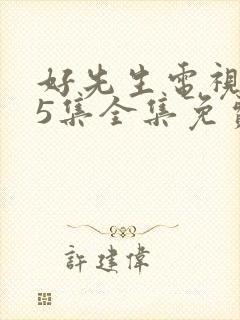 好先生電視
5集全集免費
許建偉